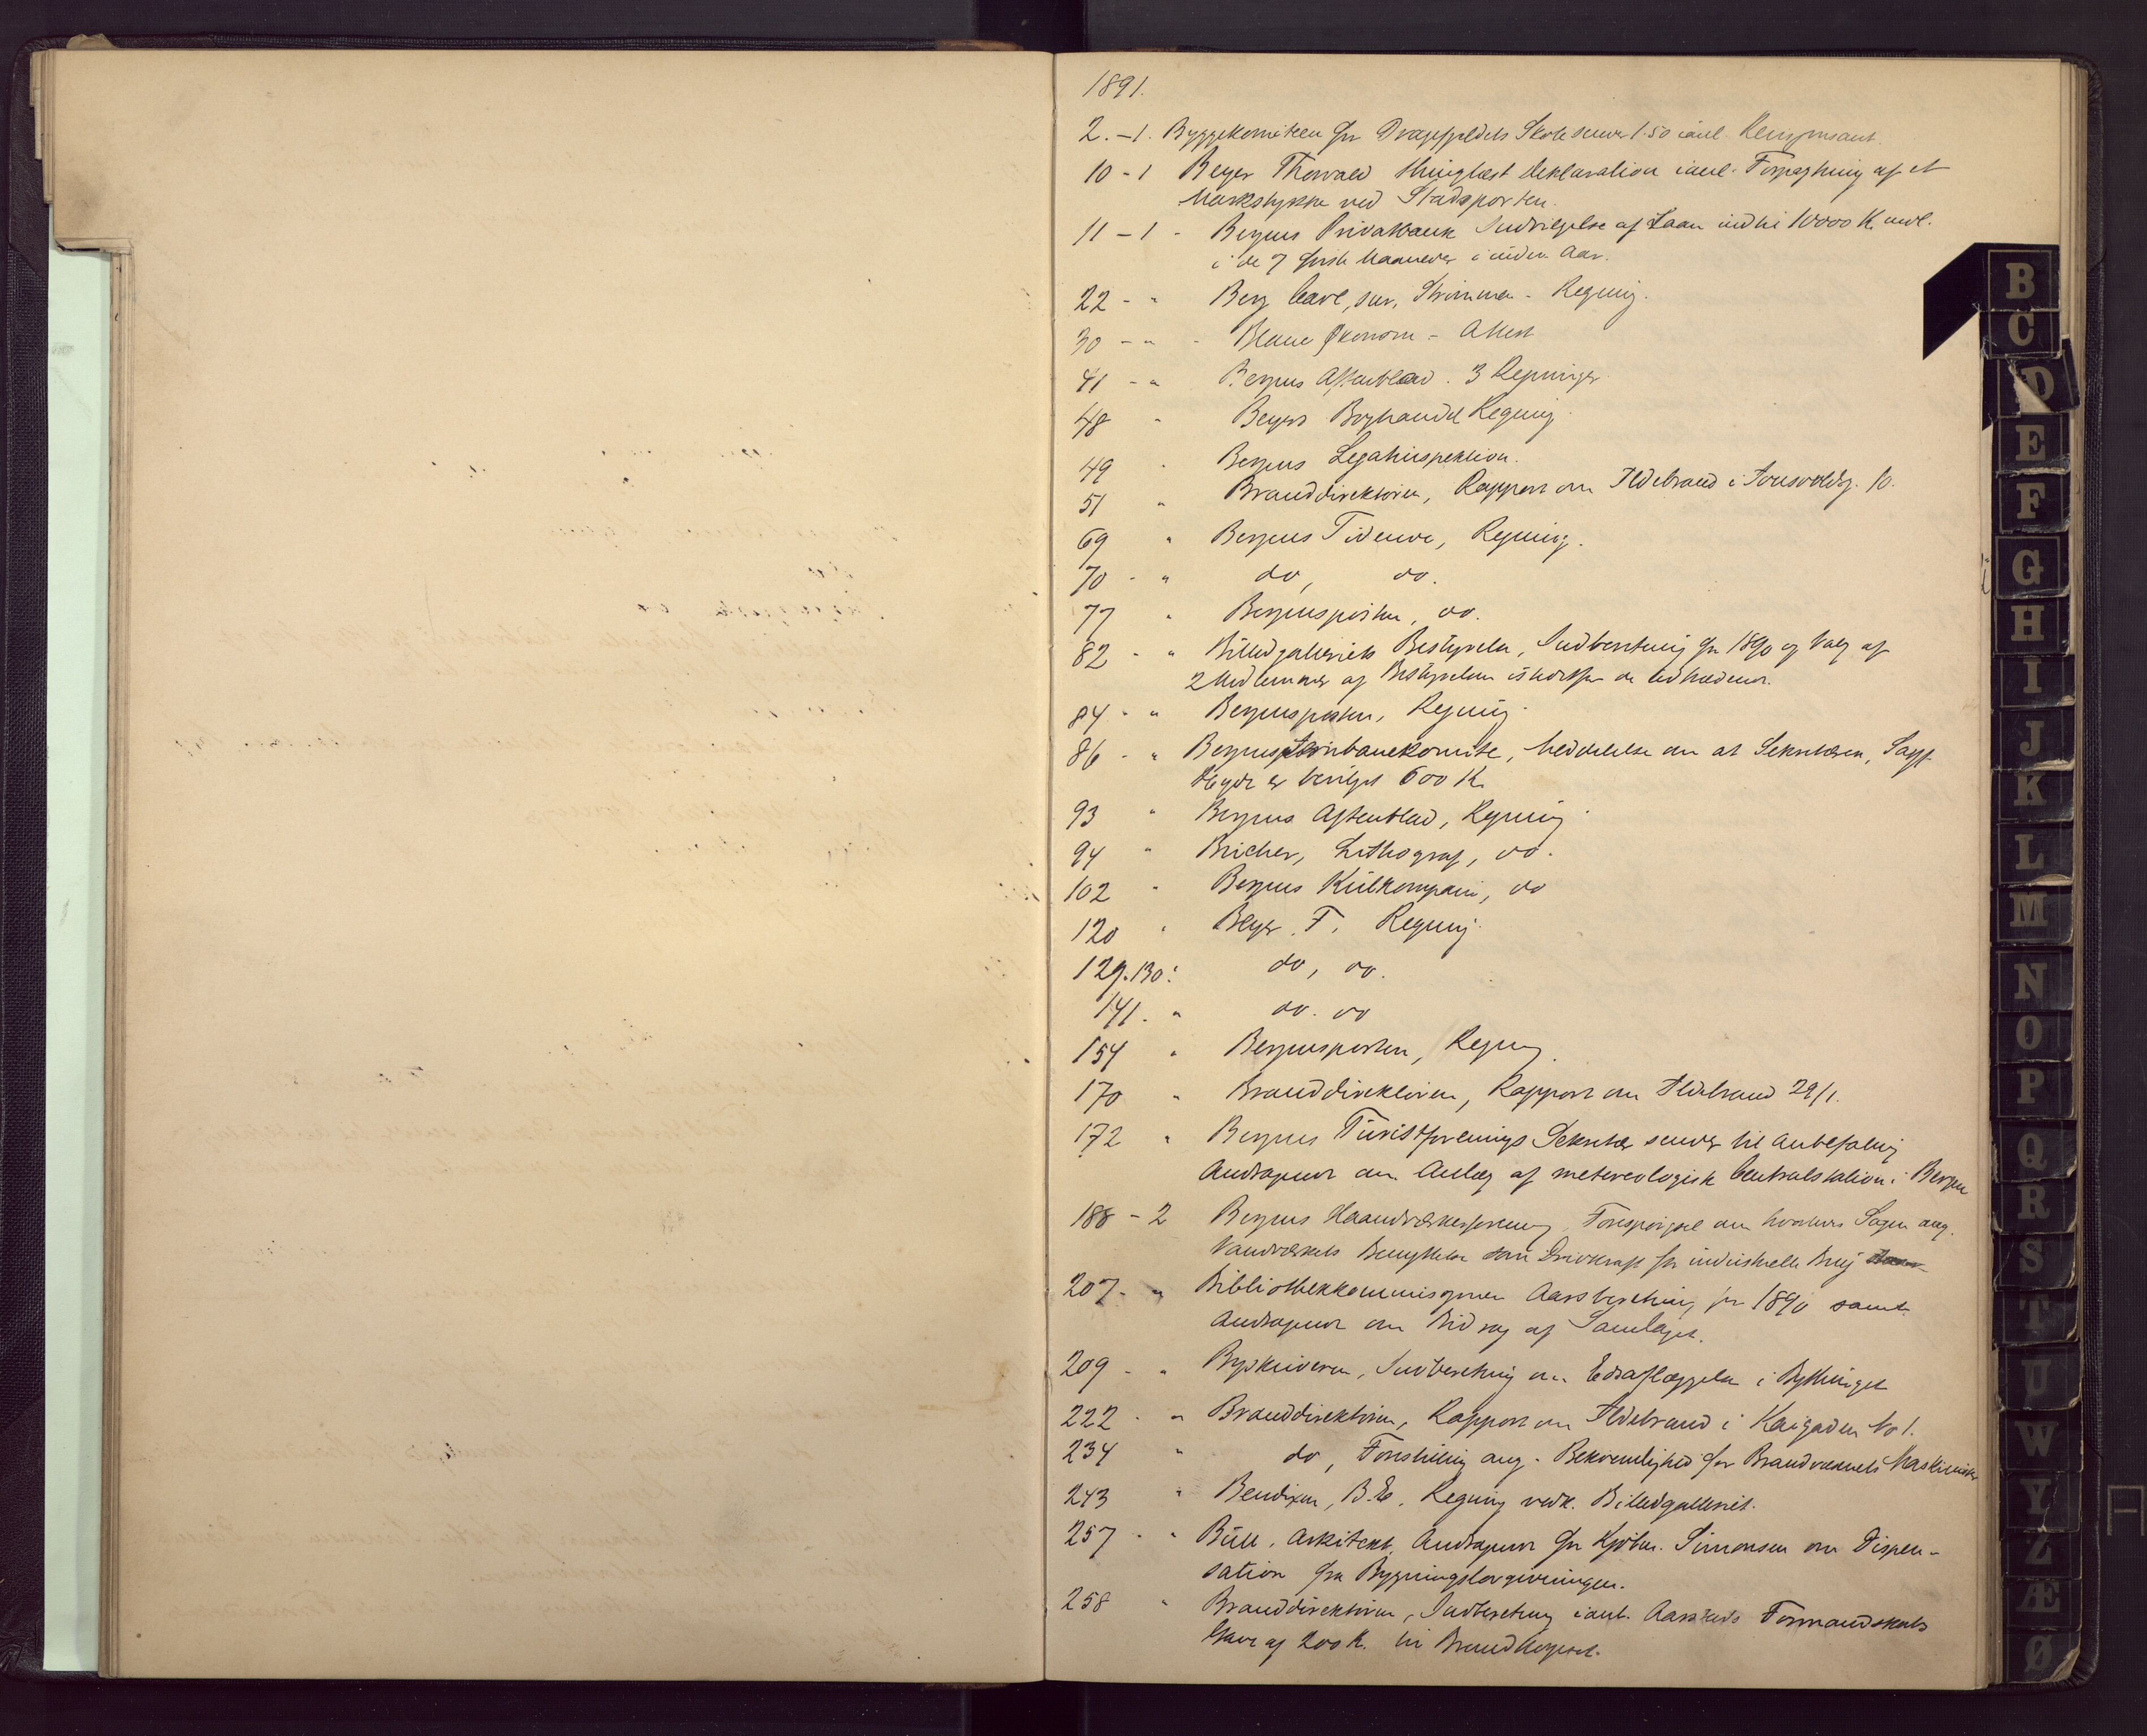 1891.
2. - 1. Byggekomiteen for Dragefjeldets Skole sender 1.50 i anl.
10 - 1 Beyer Thorvald thinglæst Deklaration i anl. Forpagtning af et
Markstykke ved Stadsporten.
11 - 1 - Bergens Privatbank Indvilgelse af Laan indtil 10000 K. mdl.
i de 7 første Maaneder i indev. Aar.
22 - " Berg Carl, sen. Strimmen - Regning.
30 - " - Blaue Økonom - Attest
41 - " Bergens Aftenblad. 3 Regninger
48 " Beyers Boghandel Regning.
49 " Bergens Legatinspektion.
51 " Branddirektøren, Rapport om Ildebrand i Tonsvoldsg. 10.
69 " Bergens Tidende, Regning.
70 - " do, do.
77 " Bergensposten, do.
82 - " Billedgalleriets Bestyrelse, Indberetning for 1890 og Valg af
2 Medlemmer af Bestyrelsen istedetfor de udtrædende.
84 - " Bergensposten, Regning
86 - " Bergens Jernbanekomite, Meddelelse om at Sekretæren, Sagf.
er bevilget 600 K.
93 " Bergens Aftenblad, Regning
94 " Bricher, Lithograf, do.
102 " Bergens Kulkompani, do
120 " Beyer. F. Regning.
129.130: do, do.
141. " do. do
154 " Bergensposten, Regning
170 " Branddirektøren, Rapport om Ildebrand 29/1.
172 " Bergens Turistforenings Sekretær sender til Anbefaling
Andragende om Anlæg af metereologisk Centralstation i Bergen
188 - 2 Bergens Haandværkerforening, Forespørgsel om hvorledes Sagen ang.
Vandværkets Benyttelse som Drivkraft for industrielle Brug
207 - " Bibliothekkommissionen Aarsberetning for 1890 samt
Andragende om Bidrag af Samlaget.
209 - " Byskriveren, Indberetning om Edsaflæggelse i Bythinget
222 - " Branddirektøren, Rapport om Ildebrand i Kaigaden No 1.
234 " do, Forestilling ang. Bekvemlighed for Brandvæsenets Maskinister
243 " Bendixen, B.E. Regning vedk. Billedgalleriet.
257 - " Bull, Arkitekt, Andragende for Kjøbm. Simonsen om Dispen-
sation fra Bygningslovgivningen.
258 " Branddirektøren, Indberetning i anl. Aarstads Formandskabs
Gave af 200 K. til Brandkorpset.
B
C
D
E
F
G
H
I
J
K
L
M
N
O
P
Q
R
S
T
U
W
Y
Z
Æ
Ø
A